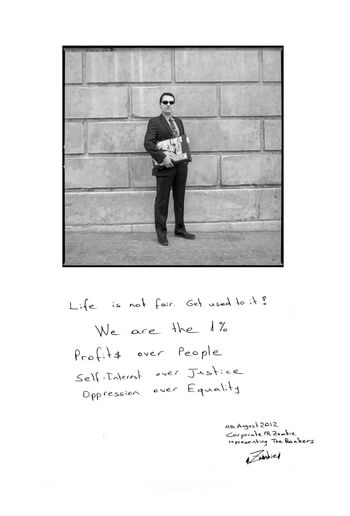 Life is not fair. Get used to it!
We are the 1%
Profit$ over People
Self-Interest over Justice
Oppression over Equality
August 2012
Corporate Zombie
representing The Bankers
Zombie